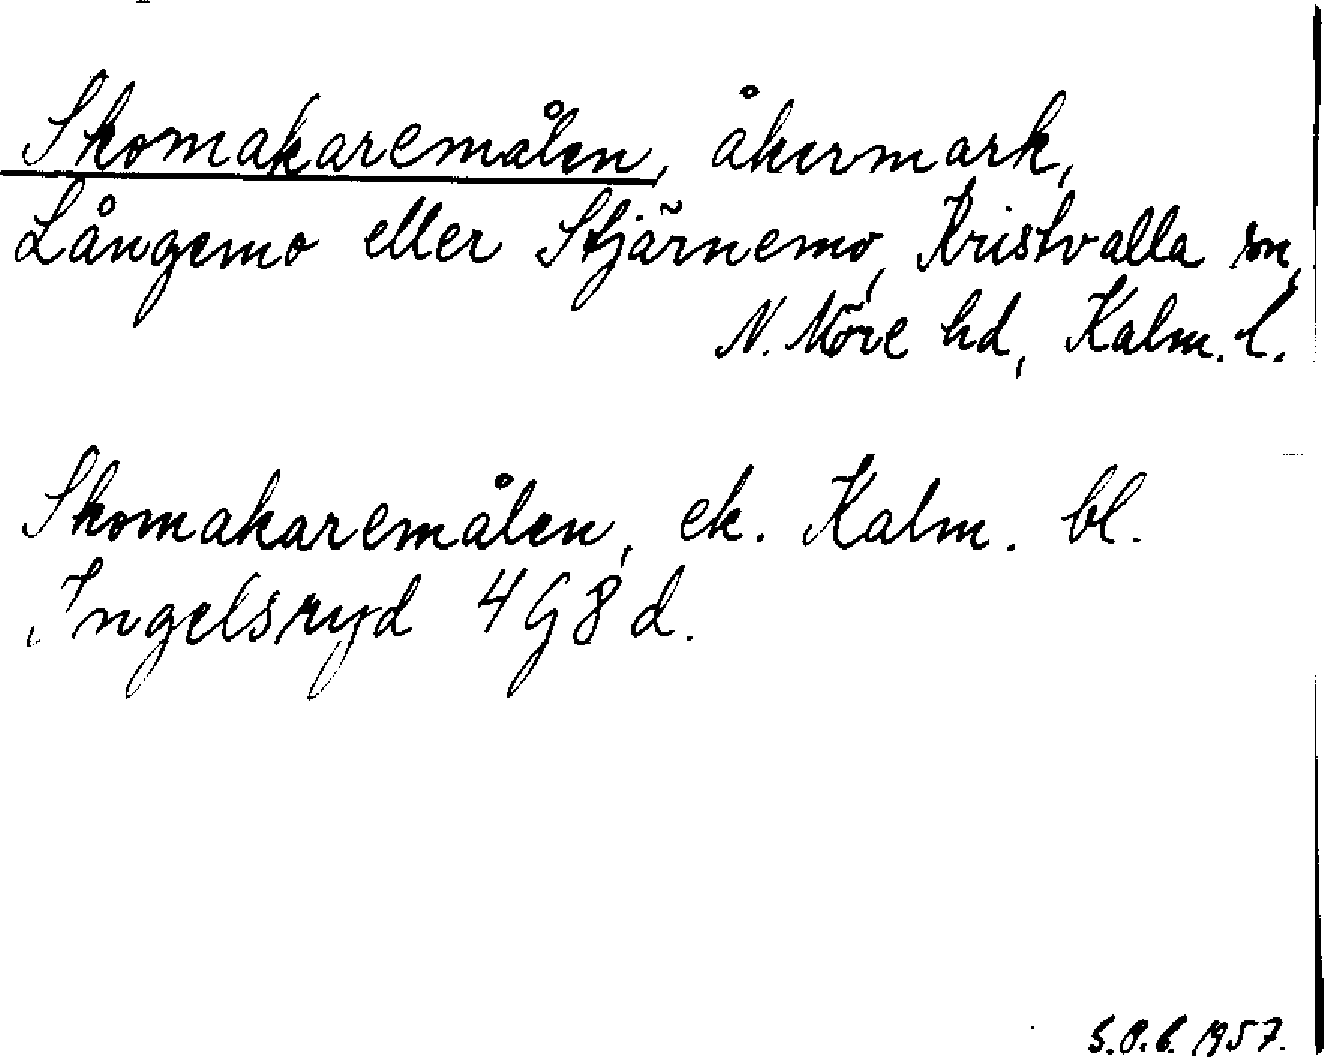 Skomakaremålen, åkermark,
Långemo eller Stjärnemo, Kristvalla sn,
N. Möre hd, Kalm. l.
Skomakaremålen, ek. Kalm. bl.
Ingelsryd 4 G 8 d.
1957.